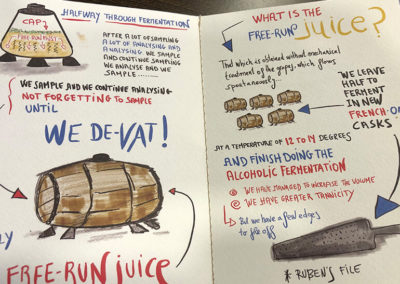 HALFWAY THROUGH FERMENTATION
CAP
FREE-RUN JUICE
AFTER A LOT OF SAMPLING
A LOT OF ANALYSING AND
ANALYSING. WE SAMPLE
AND CONTINUE SAMPLING
WE ANALYSE AND WE
SAMPLE........
WE SAMPLE AND WE CONTINUE ANALYSING
NOT FORGETTING TO SAMPLE
UNTIL
WE DE-VAT!
LY
FREE-RUN JUICE
WHAT IS THE
FREE-RUN JUICE?
That which is obtained without mechanical
treatment of the grapes, which flows
spontaneously..
"WE LEAVE
HALF TO
FERMENT
IN NEW
FRENCH-O
CASKS
AT A TEMPERATURE OF 12 TO 14 DEGREES
AND FINISH DOING THE
ALCOHOLIC FERMENTATION
WE HAVE MANAGED TO INCREASE THE VOLUME
WE HAVE GREATER TANNICITY
But we have a few edges
to file off
* RUBEN'S FILE